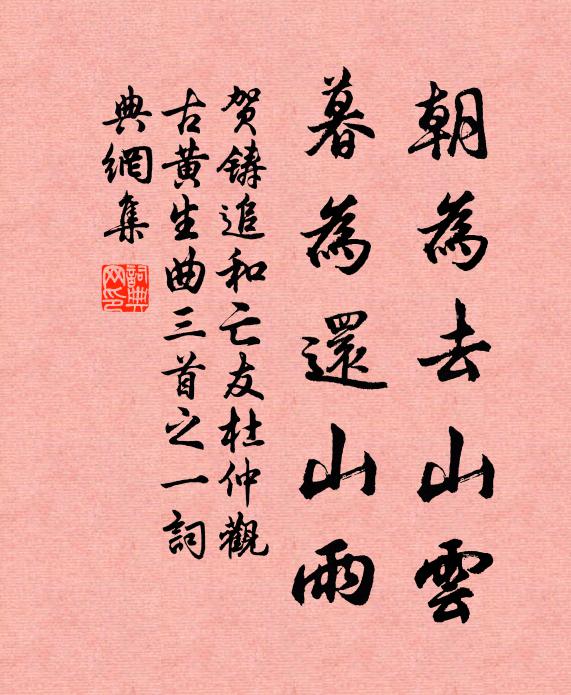 朝為去山雲
暮為還山雨
贺鑄追和亡友杜仲觀
古黄生曲三首之一詞
典網集
詞典网印